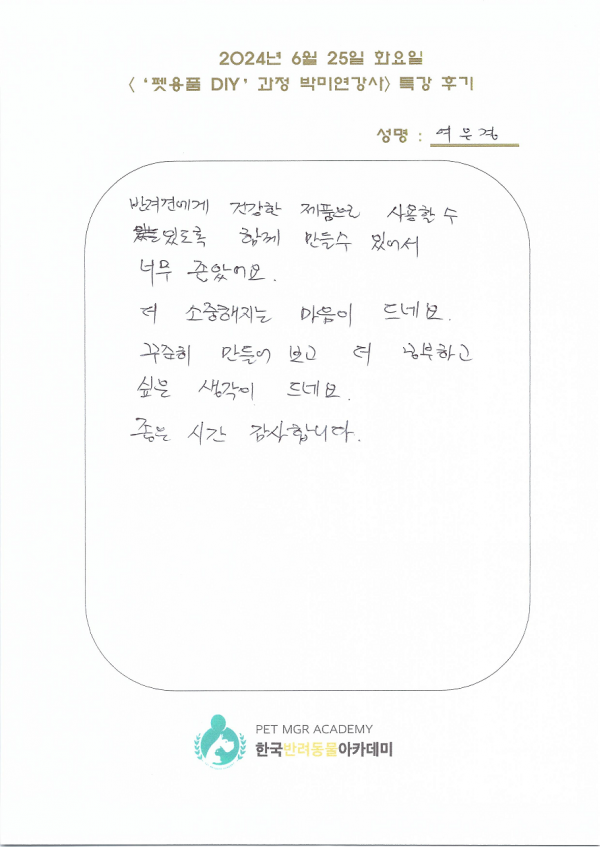 2024년 6월 25일 화요일
< '펫용품 DIY' 과정 박미연강사> 특강 후기
성명 : 여운경
반려견에게 건강한 제품으로 사용할 수
있도록 함께 만들수 있어서
너무 좋았어요.
더 소중해지는 마음이 드네요.
꾸준히 만들어 보고 더 공부하고
싶은 생각이 드네요.
좋은 시간 감사합니다.
PET MGR ACADEMY
한국반려동물아카데미